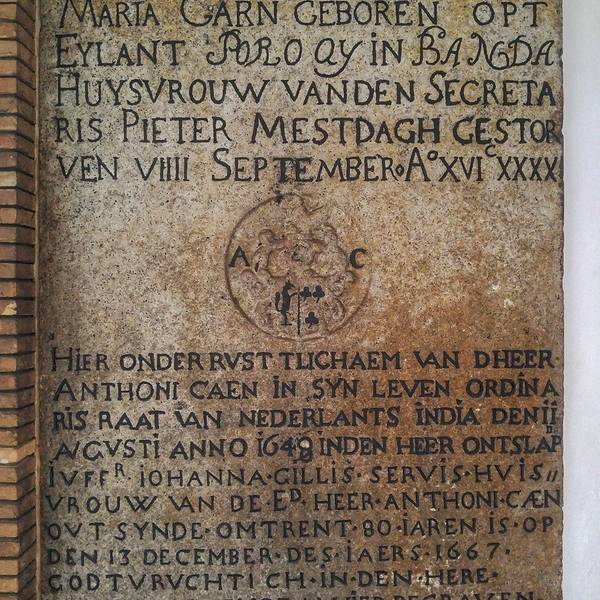 MARIA CARN GEBOREN OPT
EYLANT POROQY IN BANGDA
HUYSVROUW VANDEN SECRETA
RIS PIETER MESTDAGH GESTOR
VEN VIIII SEPTEMBER Aº XVIᶜ XXXX
A C
HIER ONDER RVST TLICHAEM VAN DHEER
ANTHONI CAEN IN SYN LEVEN ORDINA
RIS RAAT VAN NEDERLANTS INDIA DEN II
AVGVSTI ANNO 1648 INDEN HEER ONTSLAP
IVFFᴿ IOHANNA·GILLIS·SERVIS·HVIS
VROUW VAN DE Eᴰ HEER·ANTHONI·CÆN
OVT SYNDE·OMTRENT·80·IAREN IS·OP
DEN 13 DECEMBER·DES·IAERS·1667·
GODTVRVCHTICH·IN·DEN·HERE·